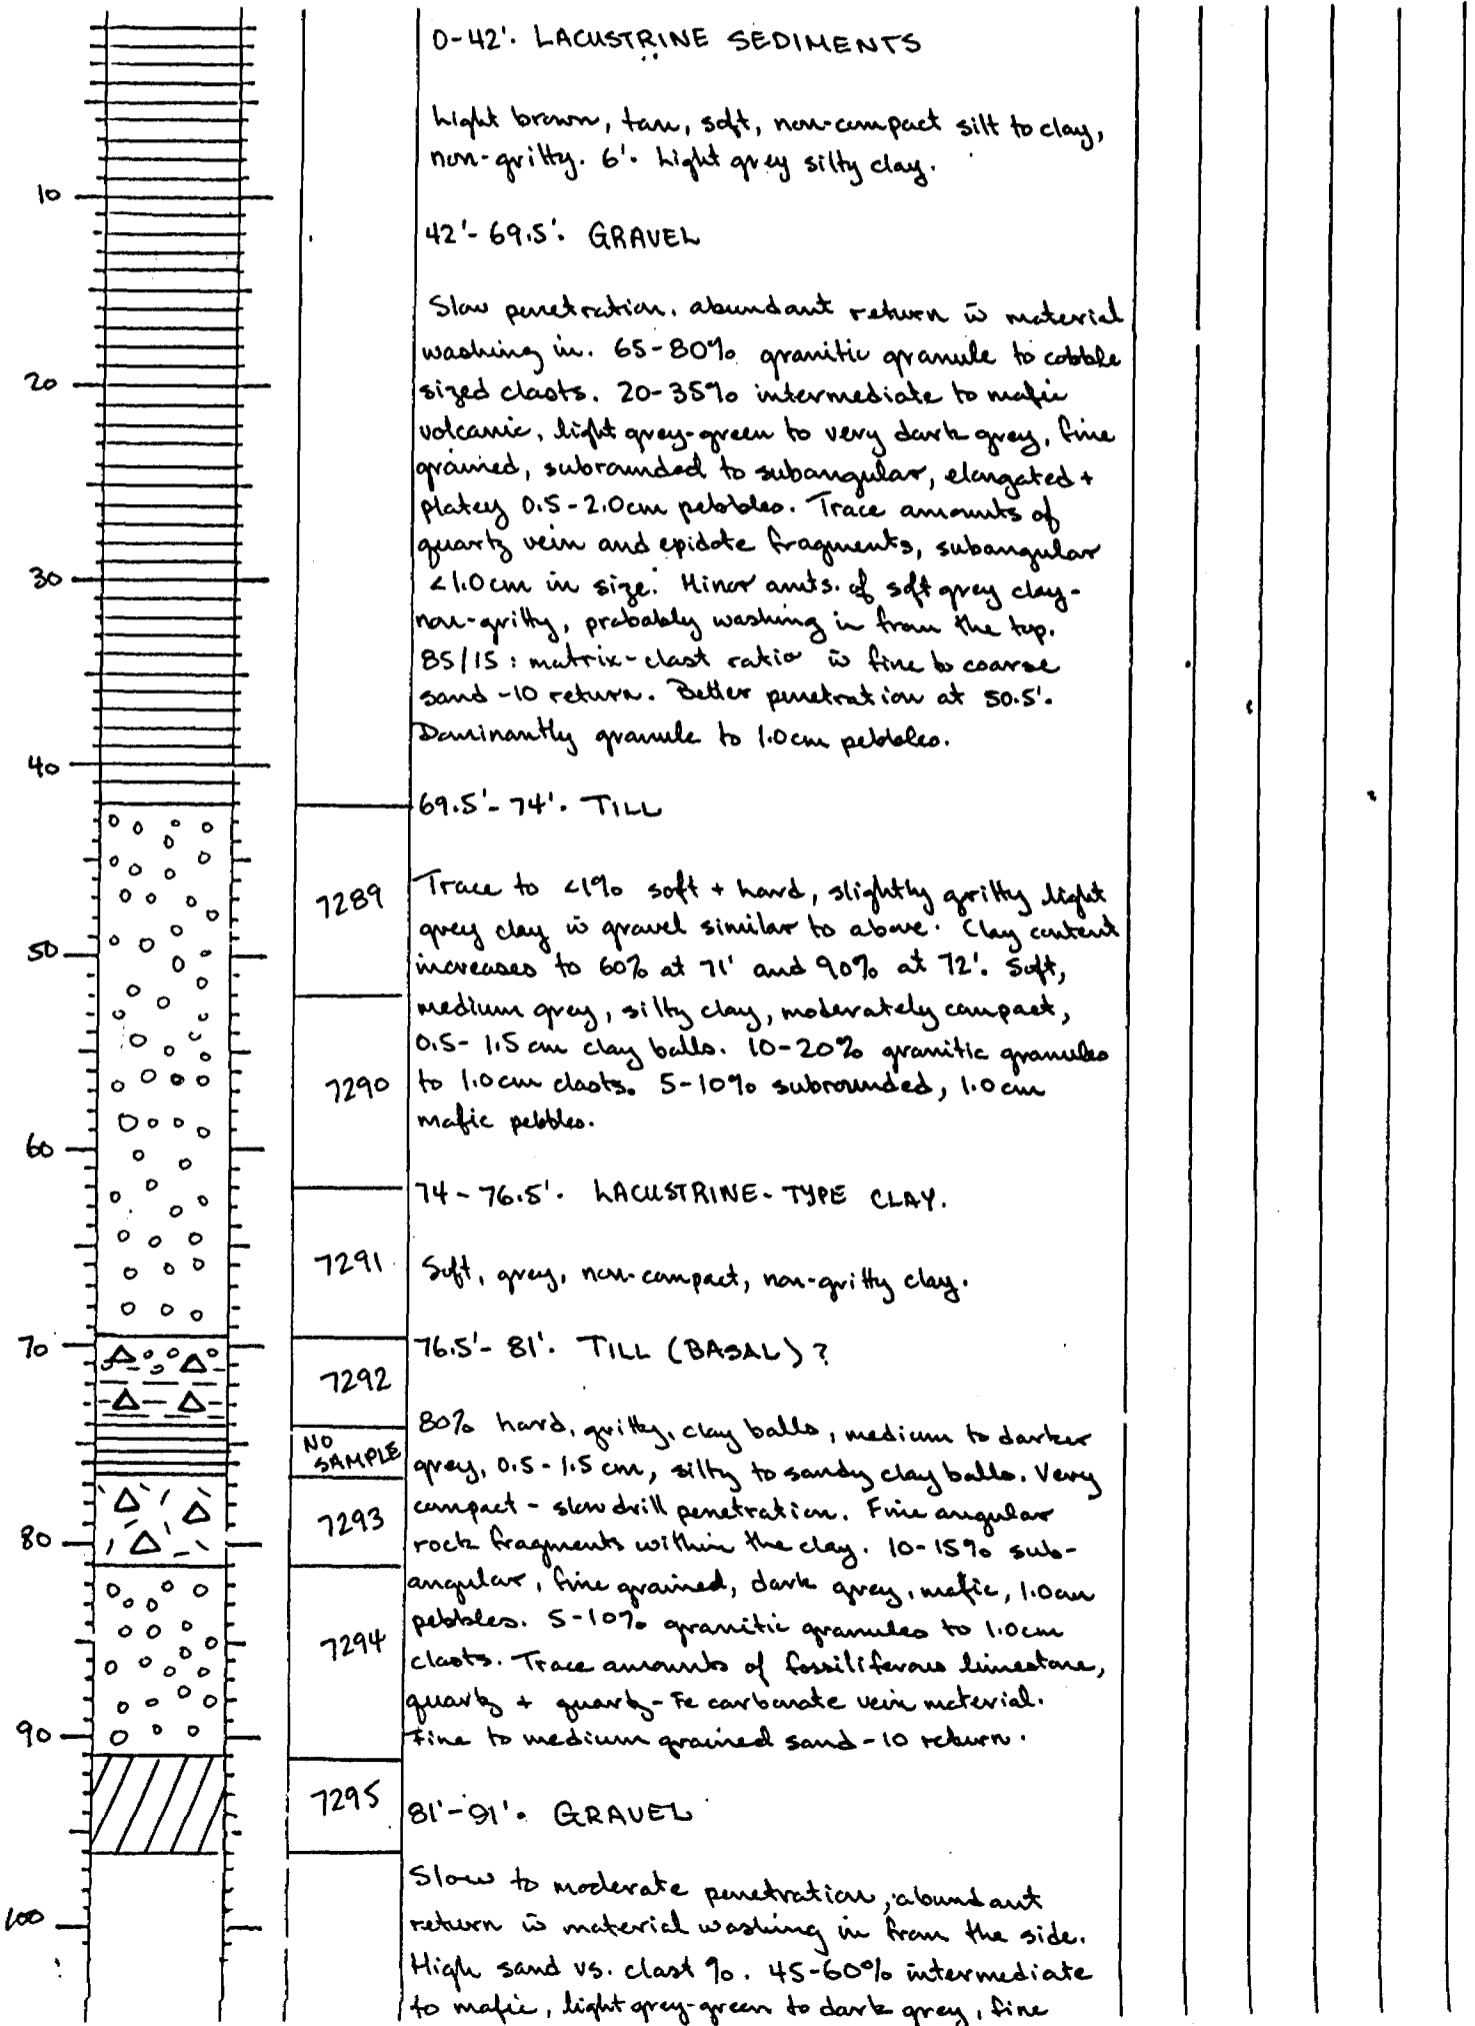 0-42'. LACUSTRINE SEDIMENTS
Light brown, tan, soft, non-compact silt to clay,
non-gritty. 6'. Light grey silty clay.
10
42'-69.5'. GRAVEL
Slow penetration. abundant return w̄ material
washing in. 65-80% granitic granule to cobble
20
sized clasts. 20-35% intermediate to mafic
volcanic, light grey-green to very dark grey, fine
grained, subrounded to subangular, elongated +
platey 0.5-2.0cm pebbles. Trace amounts of
quartz vein and epidote fragments, subangular
30
<1.0cm in size. Minor amts. of soft grey clay-
non-gritty, probably washing in from the top.
85/15: matrix-clast ratio w̄ fine to coarse
sand -10 return. Better penetration at 50.5'.
Dominantly granule to 1.0cm pebbles.
40
69.5'-74'. TILL
7289
Trace to <1% soft + hard, slightly gritty light
grey clay w̄ gravel similar to above. Clay content
50
increases to 60% at 71' and 90% at 72'. Soft,
medium grey, silty clay, moderately compact,
0.5-1.5cm clay balls. 10-20% granitic granules
7290
to 1.0cm clasts. 5-10% subrounded, 1.0cm
mafic pebbles.
60
74-76.5'. LACUSTRINE-TYPE CLAY.
7291
Soft, grey, non-compact, non-gritty clay.
70
76.5'-81'. TILL (BASAL)?
7292
80% hard, gritty, clay balls, medium to darker
NO
SAMPLE
grey, 0.5-1.5cm, silty to sandy clay balls. Very
compact - slow drill penetration. Fine angular
7293
80
rock fragments within the clay. 10-15% sub-
angular, fine grained, dark grey, mafic, 1.0cm
pebbles. 5-10% granitic granules to 1.0cm
7294
clasts. Trace amounts of fossiliferous limestone,
quartz + quartz-Fe carbonate vein material.
90
Fine to medium grained sand -10 return.
7295
81'-91'. GRAVEL
Slow to moderate penetration, abundant
100
return w̄ material washing in from the side.
High sand vs. clast %. 45-60% intermediate
to mafic, light grey-green to dark grey, fine